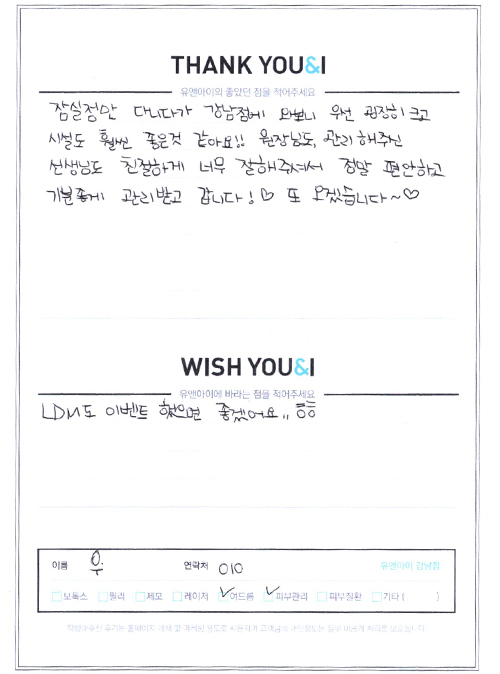 THANK YOU&I
유앤아이의 좋았던 점을 적어주세요
잠실점만 다니다가 강남점에 와보니 우선 굉장히 크고
시설도 훨씬 좋은것 같아요!! 원장님도, 관리해주신
선생님도 친절하게 너무 잘해주셔서 정말 편안하고
기분좋게 관리받고 갑니다! ♡ 또 오겠습니다~♡
WISH YOU&I
유앤아이에 바라는 점을 적어주세요
LDM도 이벤트 했으면 좋겠어요..
이름 우 연락처 010 유앤아이 강남점
보톡스 필러 제모 레이저 여드름 피부관리 피부질환 기타 ( )